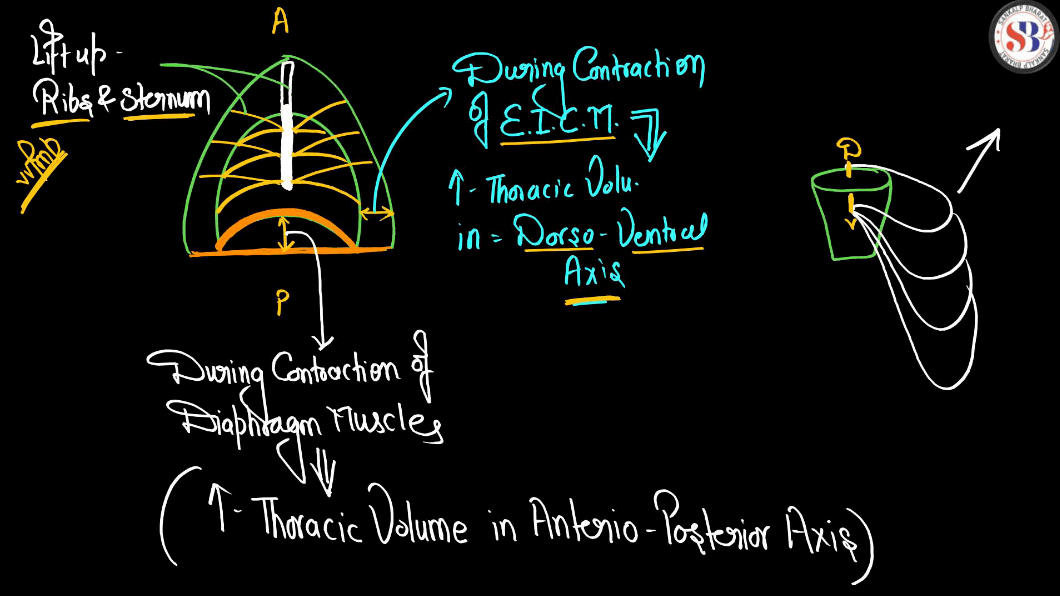 A
Lift up -
Ribs & Sternum
vvimb
During Contraction
of E.I.C.M.
↑- Thoracic Volu.
in = Dorso-Ventral
Axis
P
D
During Contraction of
Diaphragm Muscles
(↑- Thoracic Volume in Anterio-Posterior Axis)
SANKALP BHARAT
SB
SANKALP BHARAT